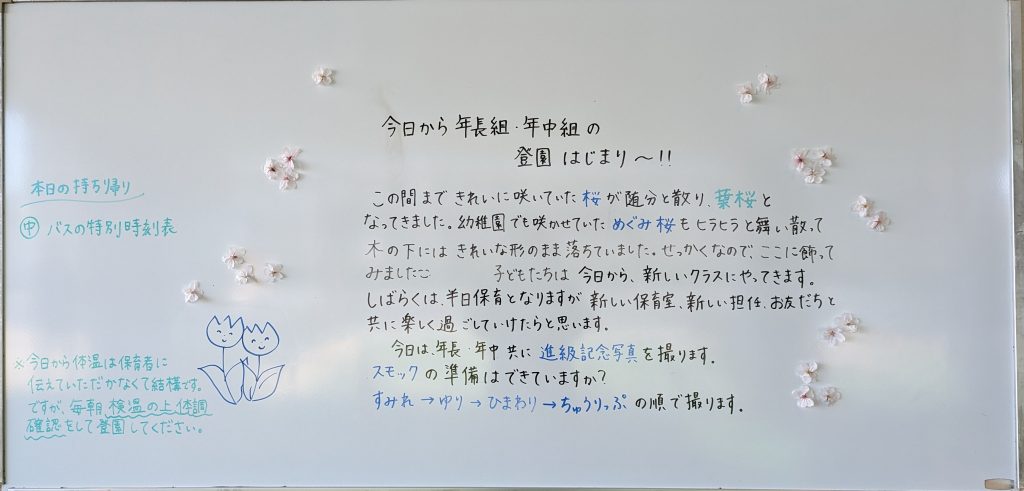 今日から 年長組・年中組の
登園 はじまり〜!!
この間まで きれいに咲いていた 桜が随分と散り、葉桜と
なってきました。幼稚園でも咲かせていた めぐみ桜も ヒラヒラと舞い散って
木の下には きれいな形のまま 落ちていました。せっかくなので、ここに飾って
みました 子どもたちは 今日から、新しいクラスにやってきます。
しばらくは、半日保育となりますが 新しい保育室、新しい担任、お友だちと
共に 楽しく過ごしていけたらと思います。
今日は、年長・年中 共に 進級記念写真を撮ります。
スモックの準備はできていますか?
すみれ→ゆり→ひまわり→ちゅうりっぷ の順で撮ります。
本日の持ち帰り
中 バスの特別時刻表
※今日から体温は保育者に
伝えていただかなくて結構です。
ですが、毎朝、検温の上、体調
確認をして登園してください。